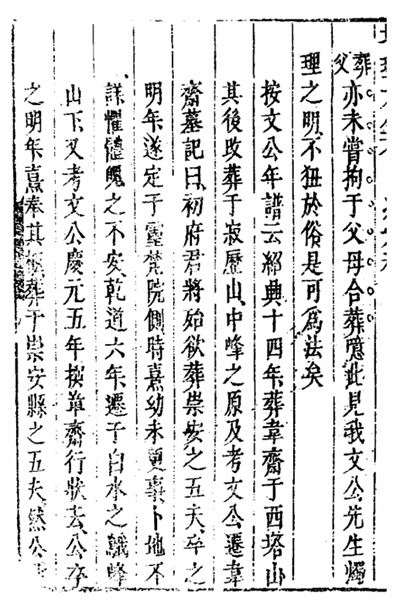 葬父亦未嘗拘于父母合葬噫此見我文公先生燭
理之明不狃於俗是可為法矣
按文公年譜云紹興十四年葬韋齋于西塔山
其後改葬于寂歷山中峰之原及考文公遷韋
齋墓記曰初府君將歿欲葬崇安之五夫卒之
明年遂定于靈梵院側時熹幼未更事卜地不
詳懼體魄之不安乾道六年遷于白水之鵝峰
山下又考文公慶元五年撰韋齋行狀云公卒
之明年熹奉其柩葬于崇安縣之五夫然公